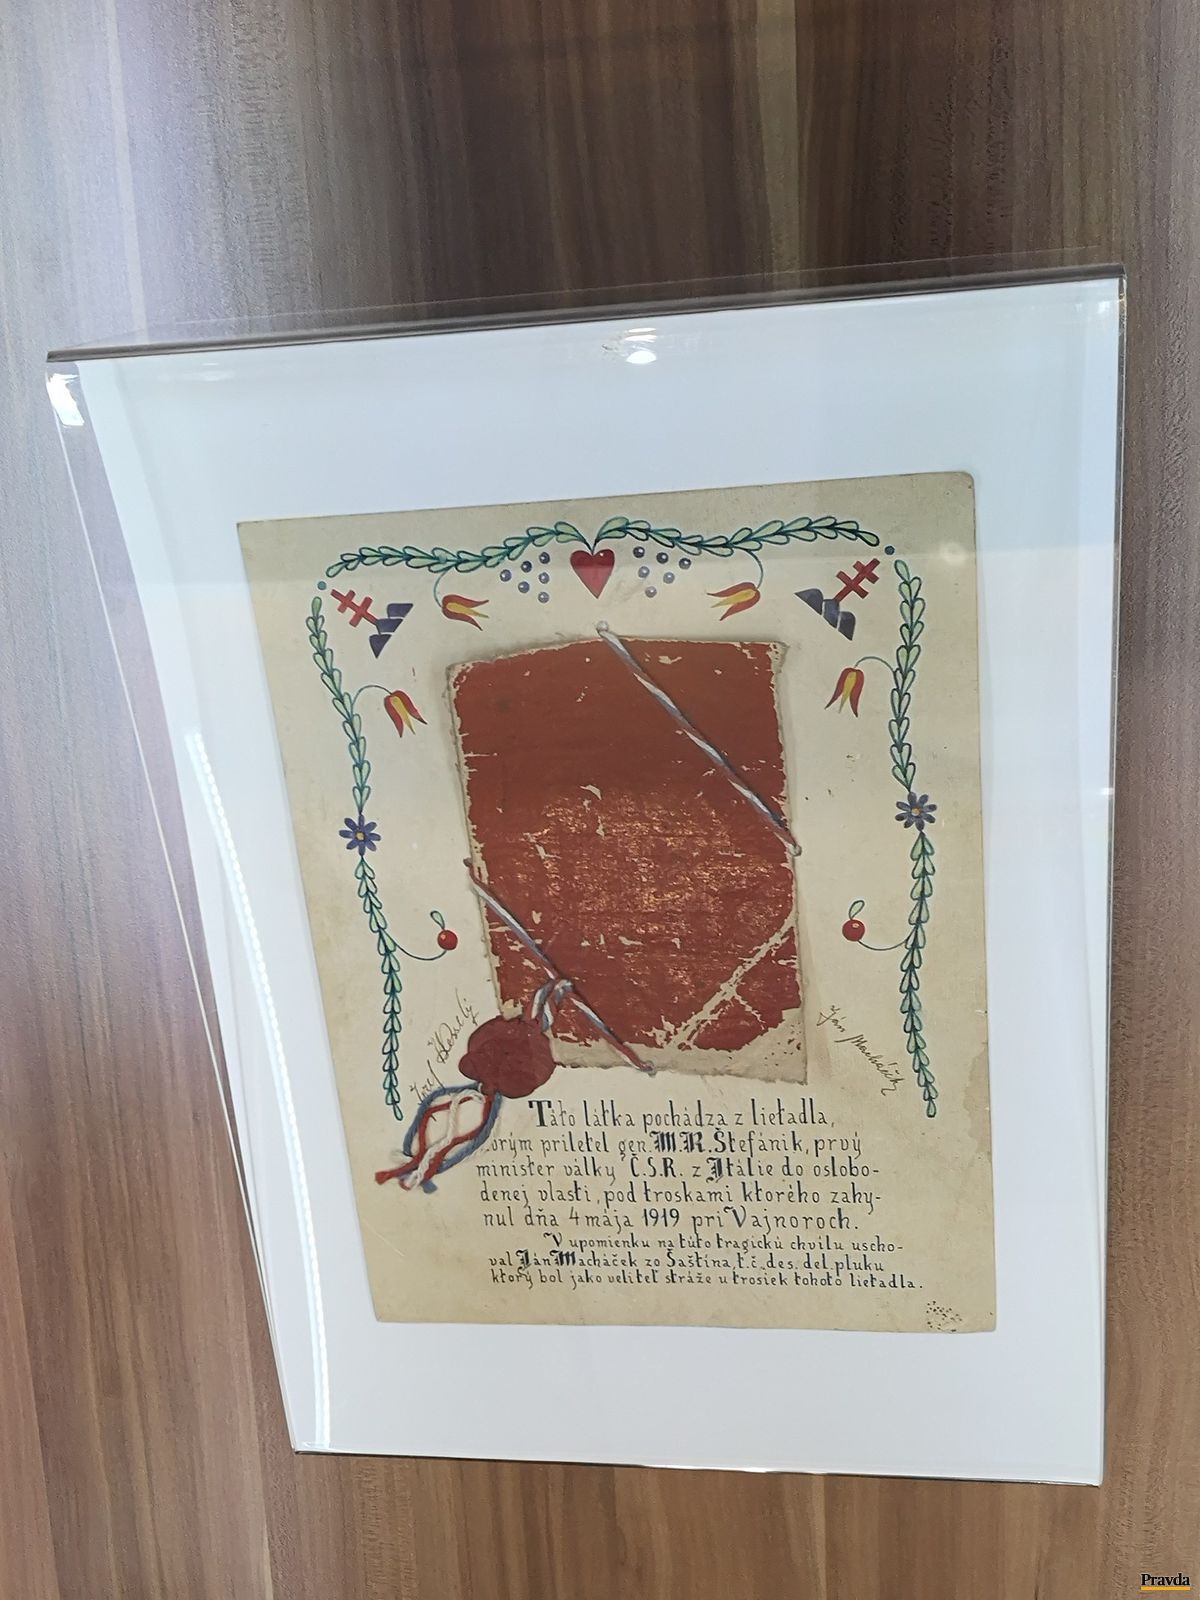 Ján Macháček
Táto látka pochádza z lietadla,
ktorým priletel gen. M.R. Štefánik, prvý
minister války Č.S.R. z Itálie do oslobo-
denej vlasti, pod troskami ktorého zahy-
nul dňa 4 mája 1919 pri Vajnoroch.
V upomienku na túto tragickú chvílu uscho-
val Ján Macháček zo Šaštína, t.č. des. del. pluku
ktorý bol jako veliteľ stráže u trosiek tohoto lietadla.
Pravda